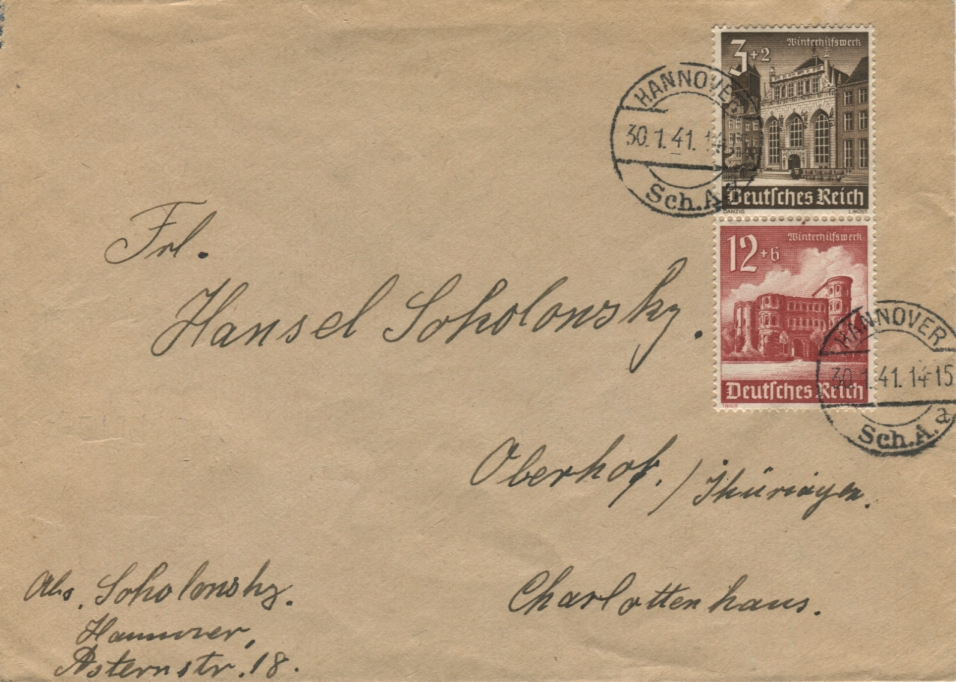 3+2 Winterhilfswerk
Deutsches Reich
DANZIG
HANNOVER
30.1.41.14
Sch.A.a
12+6 Winterhilfswerk
Deutsches Reich
HANNOVER
30.1.41.14-15
Sch.A.a
Frl.
Hansel Sokolonsky.
Oberhof. / Thüringen.
Charlottenhaus.
Abs. Sokolonsky.
Hannover,
Asternstr. 18.